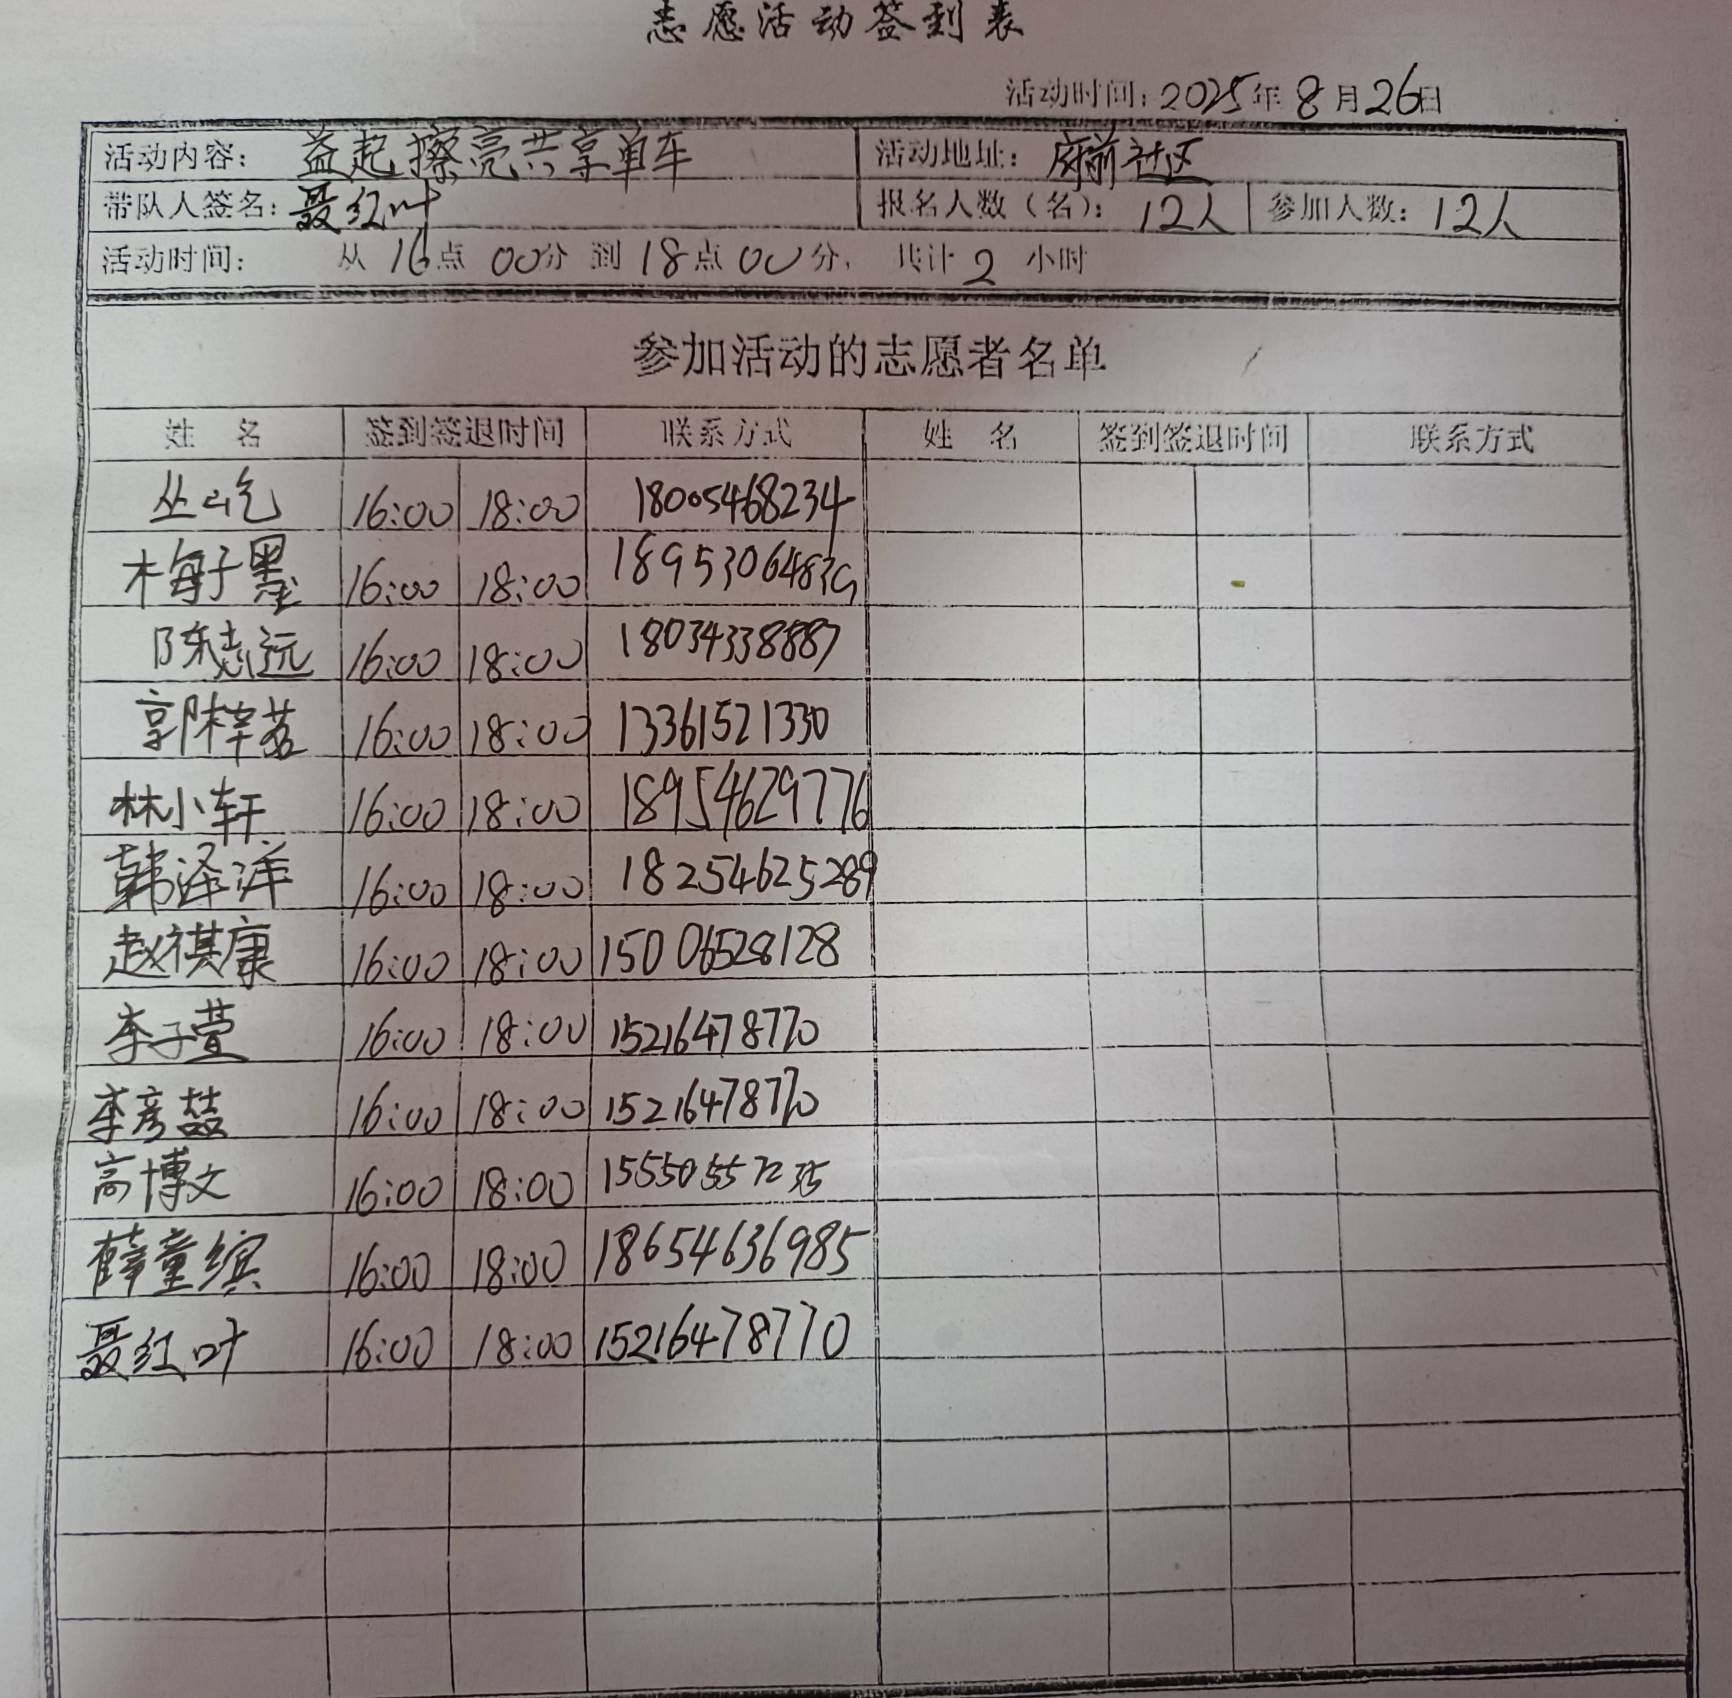 志愿活动签到表
活动时间：2025年8月26日
活动内容： 益起擦亮共享单车 活动地址： 府前社区
带队人签名： 聂红叶 报名人数（名）： 12人 参加人数： 12人
活动时间： 从16点00分到18点00分，共计2小时
参加活动的志愿者名单
姓 名 签到签退时间 联系方式 姓 名 签到签退时间 联系方式
丛屹 16:00 18:00 18005468234
梅子墨 16:00 18:00 18953064839
陈志远 16:00 18:00 18034338887
郭梓茗 16:00 18:00 13361521330
林小轩 16:00 18:00 18954629776
韩泽洋 16:00 18:00 18254625289
赵祺康 16:00 18:00 15006528128
李子萱 16:00 18:00 15216478770
李彦喆 16:00 18:00 15216478770
高博文 16:00 18:00
薛童缤 16:00 18:00 18654636985
聂红叶 16:00 18:00 15216478770